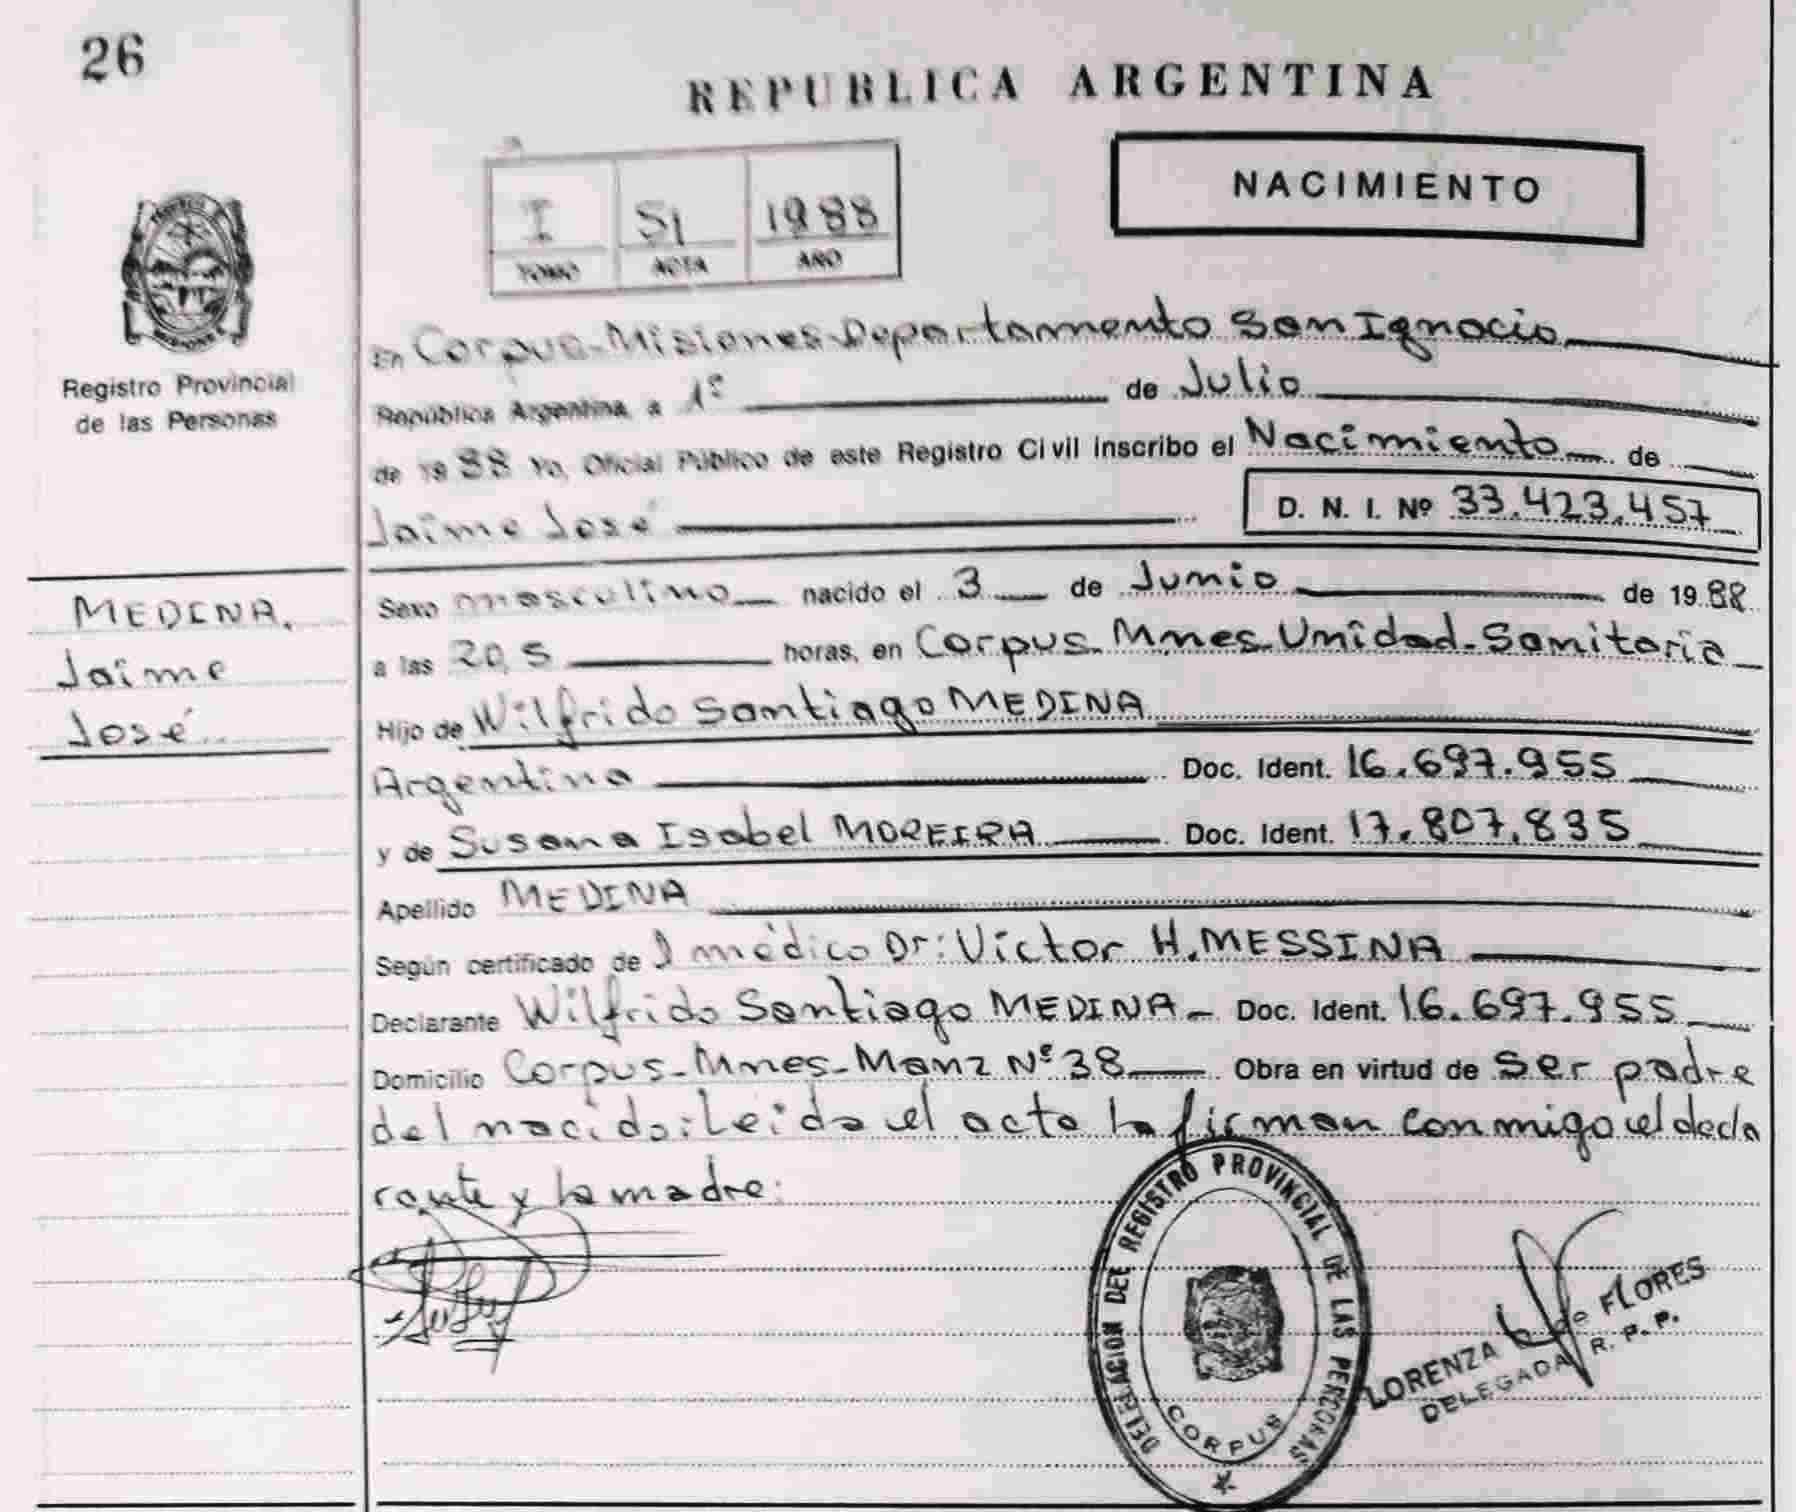 26
REPUBLICA ARGENTINA
NACIMIENTO
I 51 1988
TOMO ACTA AÑO
Registro Provincial
de las Personas
En Corpus-Misiones-Departamento San Ignacio
República Argentina, a 1º de Julio
de 1988 Yo, Oficial Público de este Registro Civil inscribo el Nacimiento de
Jaime José D. N. I. Nº 33.423.457
MEDINA,
Jaime
José
Sexo masculino nacido el 3 de Junio de 1988
a las 20,5 horas, en Corpus-Mnes-Unidad-Sanitaria
Hijo de Wilfrido Santiago MEDINA
Argentina Doc. Ident. 16.697.955
y de Susana Isabel MOREIRA Doc. Ident. 17.807.835
Apellido MEDINA
Según certificado de l médico Dr: Victor H. MESSINA
Declarante Wilfrido Santiago MEDINA Doc. Ident. 16.697.955
Domicilio Corpus-Mnes-Manz Nº 38 Obra en virtud de ser padre
del nacido: Leida el acta la firman conmigo el decla
rante y la madre:
DELEGACION DEL REGISTRO PROVINCIAL DE LAS PERSONAS
CORPUS
LORENZA de FLORES
DELEGADA R. P. P.